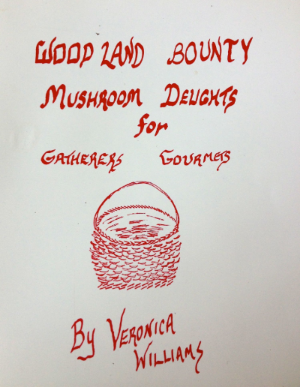 WOODLAND BOUNTY
MUSHROOM DELIGHTS
for
GATHERERS GOURMETS
By VERONICA
WILLIAMS